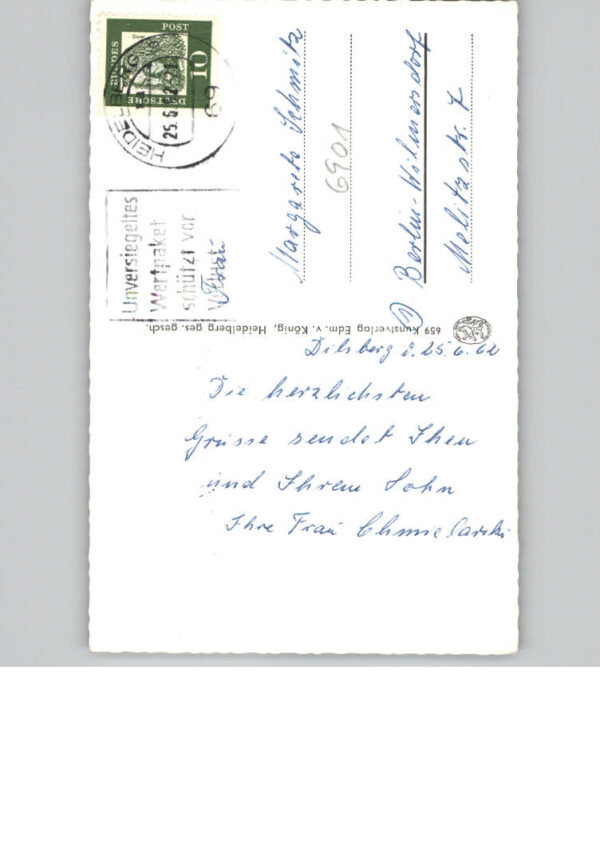 Dilsberg d. 25.6.62
Die herzlichsten
Grüsse sendet Ihnen
und Ihrem Sohn
Ihre Frau
659 Kunstverlag Edm. v. König, Heidelberg ges. gesch.
Frau
Margarete Schmitz
6901
1) Berlin-Wilmersdorf
7
Unversiegeltes
Wertpaket
schützt vor
DEUTSCHE
BUNDES
POST
10
HEIDELBERG
25.6.
69